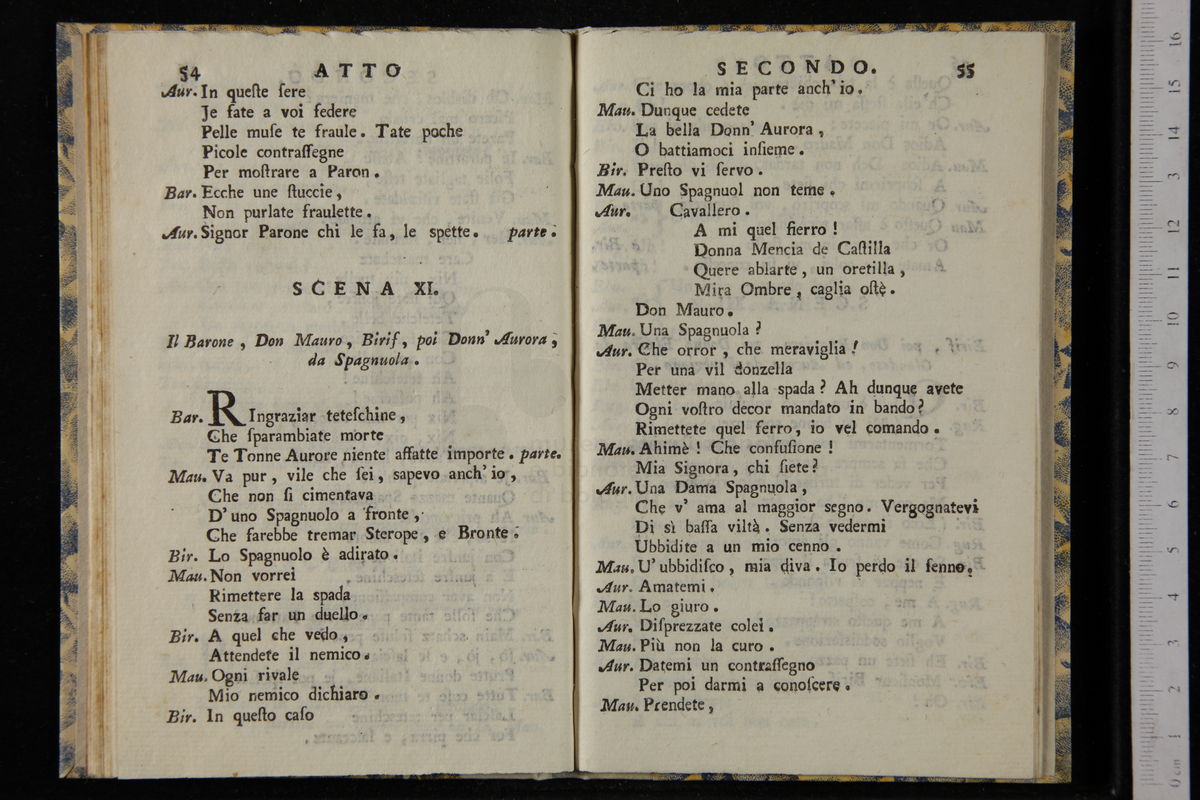 54 ATTO
Aur. In queſte ſere
Je fate a voi federe
Pelle muſe te fraule. Tate poche
Picole contraſſegne
Per moſtrare a Paron.
Bar. Ecche une ſtuccie,
Non purlate fraulette.
Aur. Signor Parone chi le fa, le spette. parte.
SCENA XI.
Il Barone, Don Mauro, Birif, poi Donn' Aurora,
da Spagnuola.
Bar. RIngraziar teteſchine,
Che ſparambiate morte
Te Tonne Aurore niente affatte importe. parte.
Mau. Va pur, vile che ſei, sapevo anch' io,
Che non ſi cimentava
D' uno Spagnuolo a fronte,
Che farebbe tremar Sterope, e Bronte.
Bir. Lo Spagnuolo è adirato.
Mau. Non vorrei
Rimettere la spada
Senza far un duello.
Bir. A quel che vedo,
Attendete il nemico.
Mau. Ogni rivale
Mio nemico dichiaro.
Bir. In queſto caſo
SECONDO. 55
Ci ho la mia parte anch' io.
Mau. Dunque cedete
La bella Donn' Aurora,
O battiamoci inſieme.
Bir. Preſto vi ſervo.
Mau. Uno Spagnuol non teme.
Aur. Cavallero.
A mi quel fierro!
Donna Mencia de Caſtilla
Quere ablarte, un oretilla,
Mira Ombre, caglia oſtè.
Don Mauro.
Mau. Una Spagnuola?
Aur. Che orror, che meraviglia!
Per una vil donzella
Metter mano alla spada? Ah dunque avete
Ogni voſtro decor mandato in bando?
Rimettete quel ferro, io vel comando.
Mau. Ahimè! Che confuſione!
Mia Signora, chi ſiete?
Aur. Una Dama Spagnuola,
Che v' ama al maggior segno. Vergognatevi
Di sì baſſa viltà. Senza vedermi
Ubbidite a un mio cenno.
Mau. U' ubbidiſco, mia diva. Io perdo il ſenno.
Aur. Amatemi.
Mau. Lo giuro.
Aur. Diſprezzate colei.
Mau. Più non la curo.
Aur. Datemi un contraſſegno
Per poi darmi a conoſcere.
Mau. Prendete,
0 cm 1 2 3 4 5 6 7 8 9 10 11 12 3 14 15 16